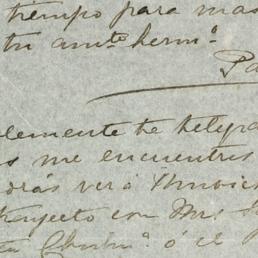 tiempo para mas
tu amto hermo.
Pa
lemente te telegra
s me encuentres
drás ver á
trayecto con Mrs
ó el